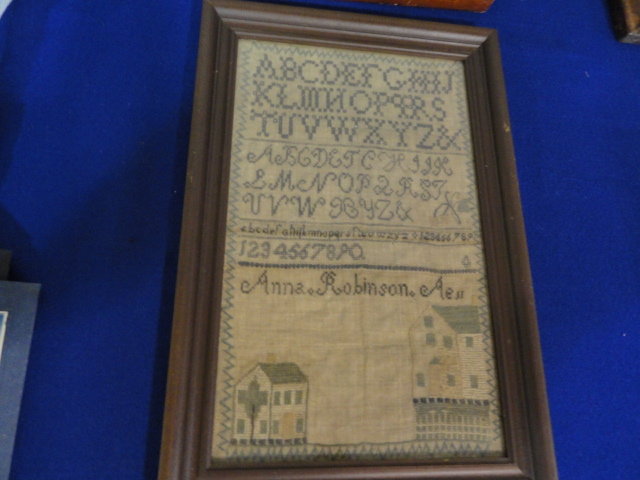 ABCDEFGHIJ
KLMNOPQRS
TUVWXYZ&
ABCDEFGHIJK
LMNOPQRST
UVWXYZ&
1234567890
Anna. Robinson. Ae 11